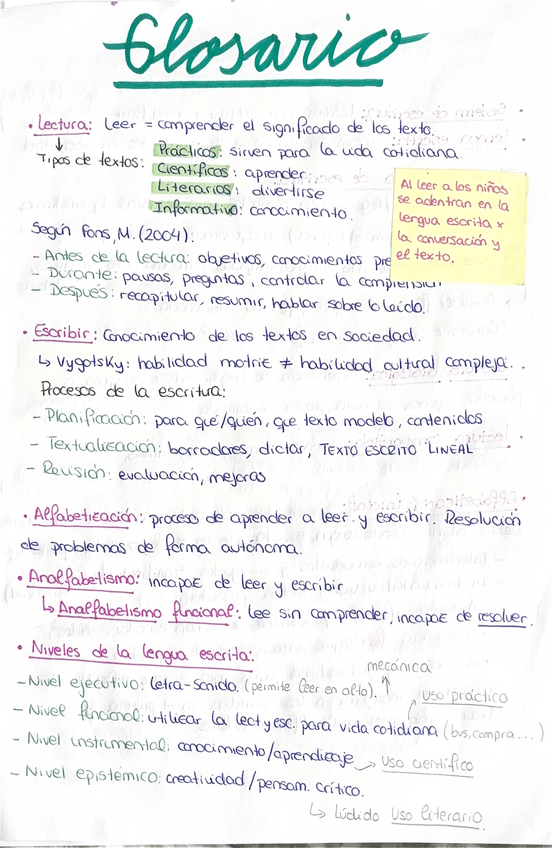 Glosario
• Lectura: Leer = comprender el significado de los texto.
↓
Tipos de textos: Prácticos: sirven para la vida cotidiana.
Científicos: aprender.
Literarios: divertirse
Informativo: conocimiento.
Al leer a los niños
se adentran en la
lengua escrita x
la conversación y
el texto.
Según Fons, M. (2004):
- Antes de la lectura: objetivos, conocimientos pre
- Durante: pausas, preguntas, controlar la comprensión
- Después: recapitular, resumir, hablar sobre lo leído.
• Escribir: Conocimiento de los textos en sociedad.
↳ Vygotsky: habilidad motriz ≠ habilidad cultural compleja.
Procesos de la escritura:
- Planificación: para qué/quién, que texto modelo, contenidos
- Textualización: borradores, dictar, TEXTO ESCRITO LINEAL
- Revisión: evaluación, mejoras
• Alfabetización: proceso de aprender a leer y escribir. Resolución
de problemas de forma autónoma.
• Analfabetismo: incapaz de leer y escribir
↳ Analfabetismo funcional: lee sin comprender, incapaz de resolver.
• Niveles de la lengua escrita:
mecánica
- Nivel ejecutivo: letra-sonido. (permite leer en alto).
uso práctico
- Nivel funcional: utilizar la lect y esc. para vida cotidiana (bus, compra...)
- Nivel instrumental: conocimiento/aprendizaje → Uso científico
- Nivel epistémico: creatividad/pensam. crítico.
↳ Lúdido Uso literario